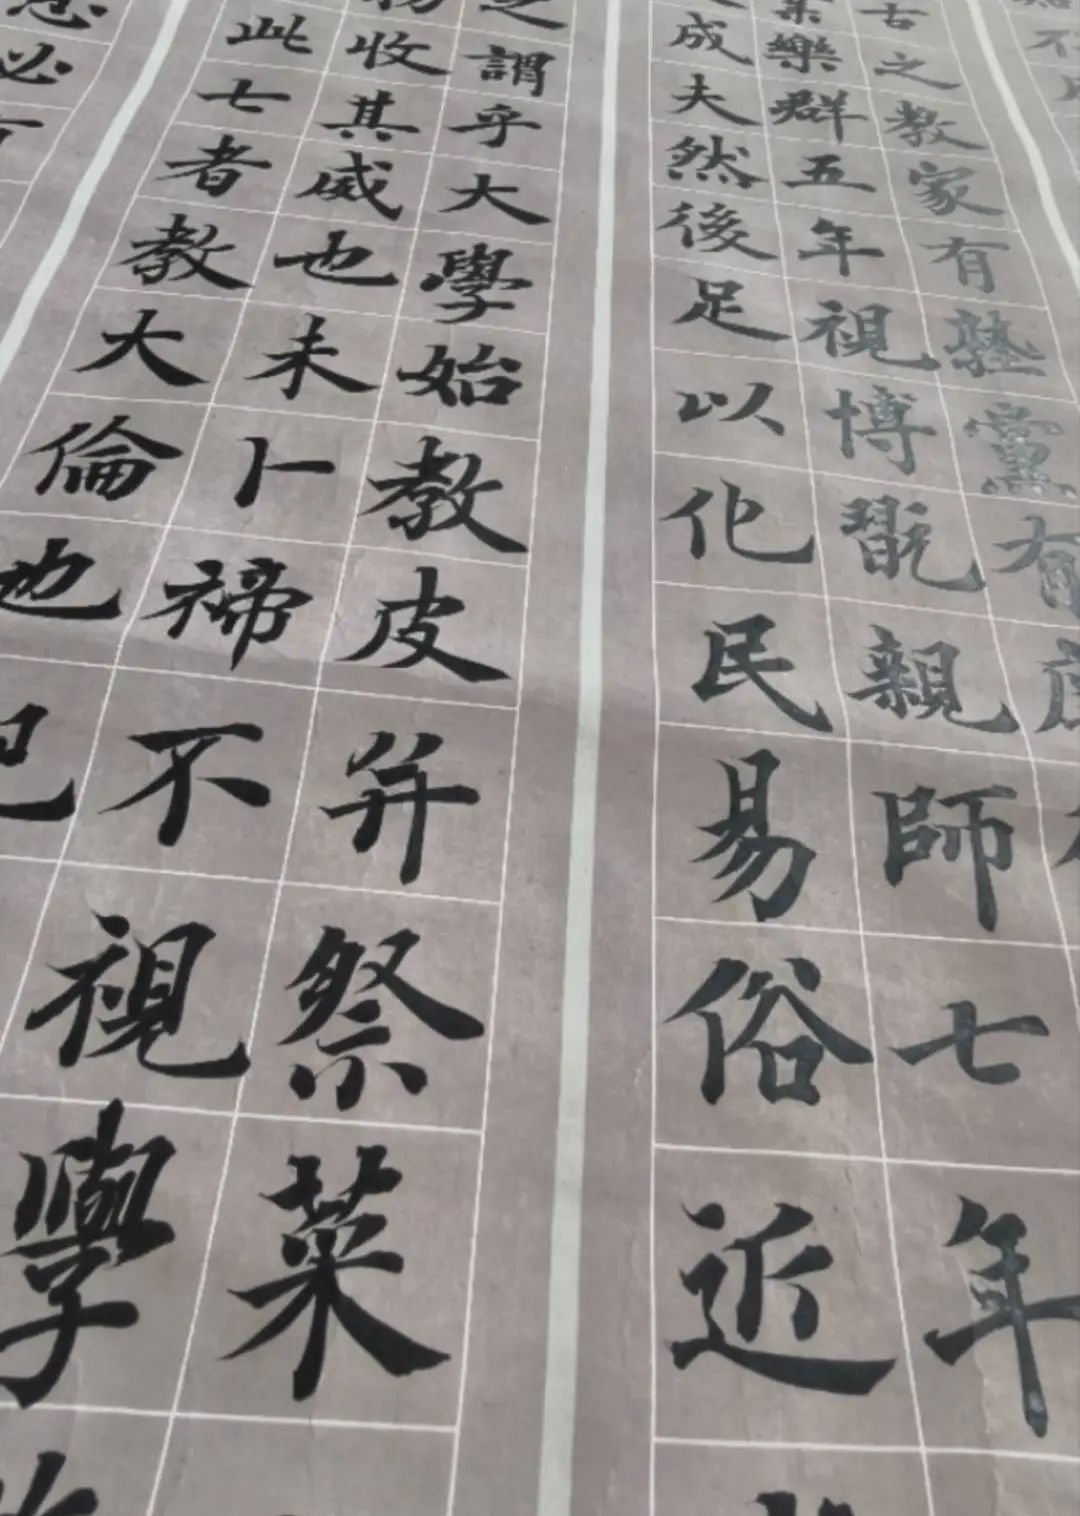 古之教家有塾黨有庠
業樂群五年視博習親師七年
成夫然後足以化民易俗近
之謂乎大學始教皮弁祭菜
物收其威也未卜禘不視學
此七者教大倫也